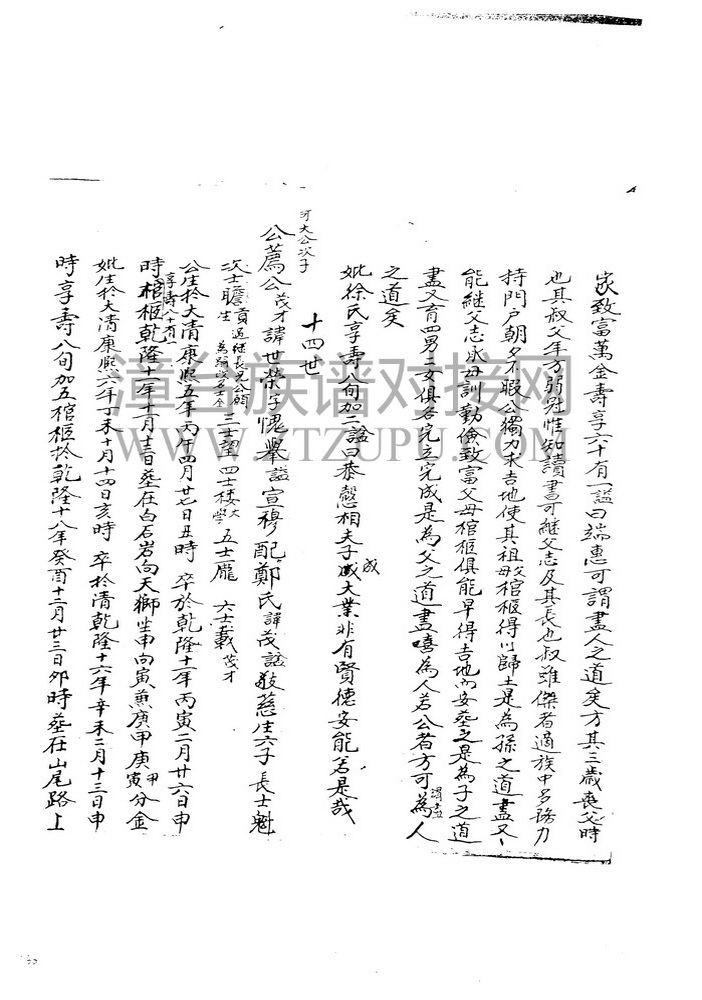 家致富萬金壽享六十有一謚曰端惠可謂盡人之道矣方其三歲喪父時
也其叔父年方弱冠性知讀書可継父志及其長也叔雖傑者適族中多務力
持門户朝夕不暇公獨力求吉地使其祖母棺柩得以歸土是為孫之道盡又
能継父志承母訓勤儉致富父母棺柩俱能早得吉地而安塟之是為子之道
盡又育四男二女俱各完立完成是為父之道盡嘻為人若公者方可謂盡為人
之道矣
妣徐氏享壽八旬加二謚曰恭慤相夫子成大業非有賢德安能若是哉
十四世
河大公次子
公薦公茂才諱世榮字愧舉謚宣穆配鄭氏諱茂謚敬慈生六子長士魁
次士瞻貢生過継長兄公願 三士望 四士楼大學 五士龐 六士載茂才
公生於大清康熙五年丙午四月廿七日丑時 卒於乾隆十一年丙寅二月廿六日申
時享壽八十有一棺柩乾隆十年十一月十三日塟在白石岩向天獅坐申向寅兼庚甲庚寅甲分金
妣生於大清康熙六年丁未十月十四日亥時 卒於清乾隆十六年辛未二月十三日申
時享壽八旬加五棺柩於乾隆十八年癸酉十二月廿三日卯時塟在山尾路上
漳台族谱对接网
WWW.ZTZUPU.COM